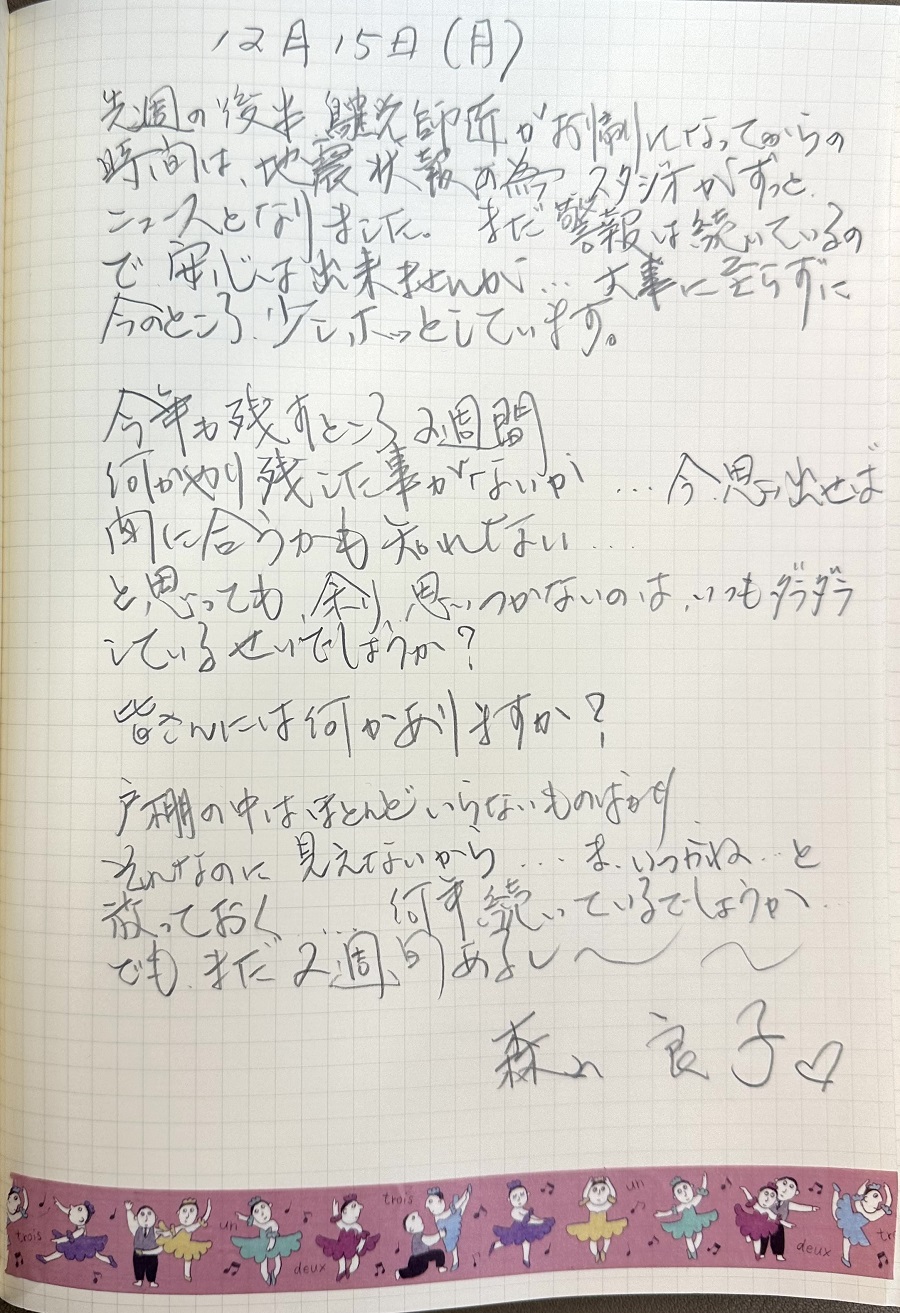 12月15日(月)
先週の後半 師匠がお帰りになってからの
時間は、地震状報の為 スタジオがずっと
ニュースとなりました。まだ警報は続いているの
で安心は出来ませんが… 大事に至らずに
今のところ、少しホッとしています。
今年も残すところ2週間
何かやり残した事がないか … 今思い出せば
間に合うかも知れない …
と思っても、余り思いつかないのは、いつもダラダラ
しているせいでしょうか?
皆さんには何かありますか?
戸棚の中はほとんどいらないものばかり
それなのに見えないから … ま、いつかね … と
放っておく … 何年続いているでしょうか …
でも、まだ2週間あるし〜 〜
森山 良子♡
trois un deux trois un deux tr